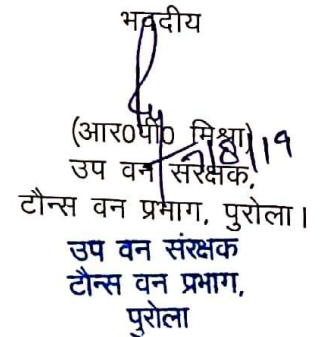 भवदीय
(आर0पी0 मिश्रा)
उप वन संरक्षक,
टौन्स वन प्रभाग, पुरोला।
उप वन संरक्षक
टौन्स वन प्रभाग,
पुरोला